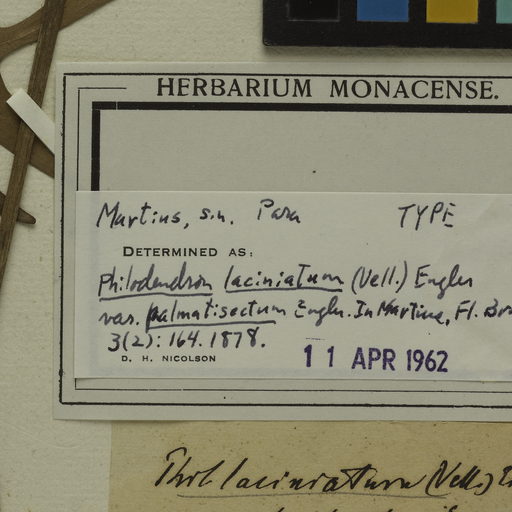 HERBARIUM MONACENSE.
Martius, s.n. Para TYPE
DETERMINED AS:
Philodendron laciniatum (Vell.) Engler
var. palmatisectum Engler. In Martius, Fl. Bra
3(2): 164. 1878.
D. H. NICOLSON 11 APR 1962
Phil laciniatum (Vell.)